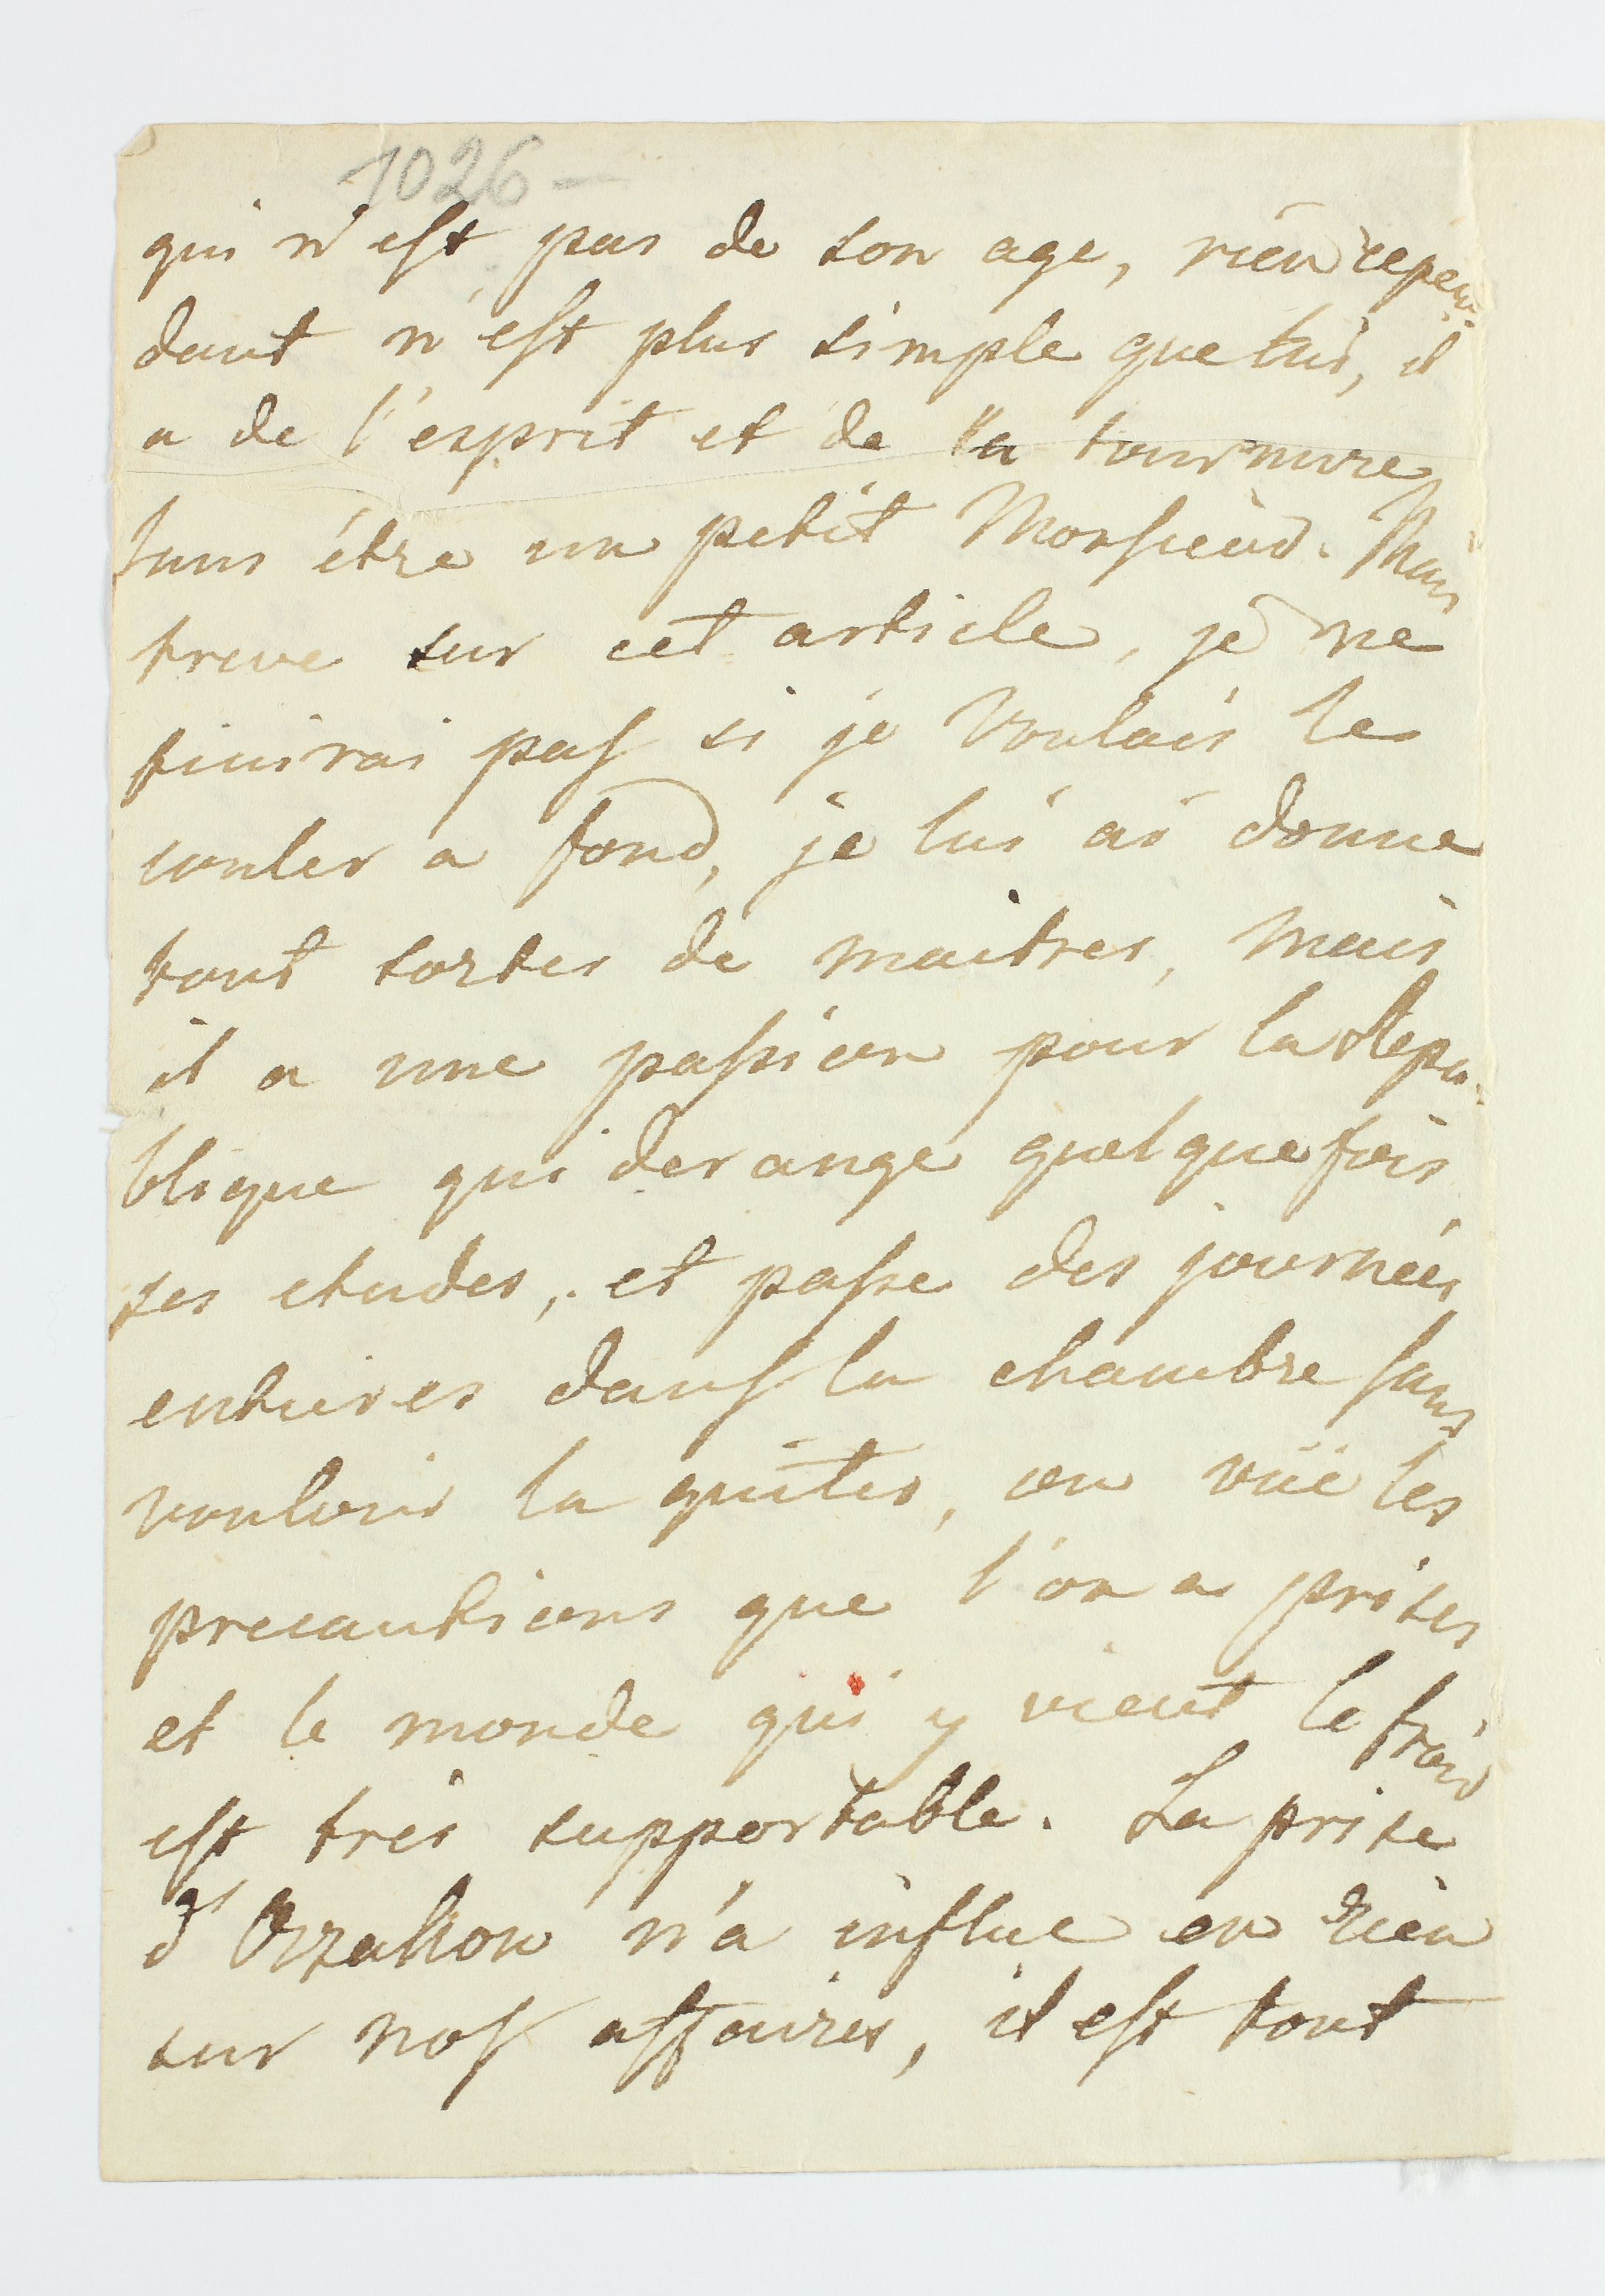 1026 -
qui n'est pas de son age, rien cepen-
dant n'est plus simple que lui, il
a de l'esprit et de la tournure
sans étre un petit Monsieur. Mais
treve sur cet article, je ne
finirai pas si je voulais le
couler a fond, je lui ai donne
tout sortes de maitres, mais
il a une passion pour la Repu-
blique qui derange quelque fois
ses etudes, et passe des journées
entieres dans la chambre sans
vouloir la quiter, en vüe les
precautions que l'on a prises
et le monde qui y vient le froid
est tres supportable. La prise
d'Orzakow n'a influe en rien
sur nos affaires, il est tout